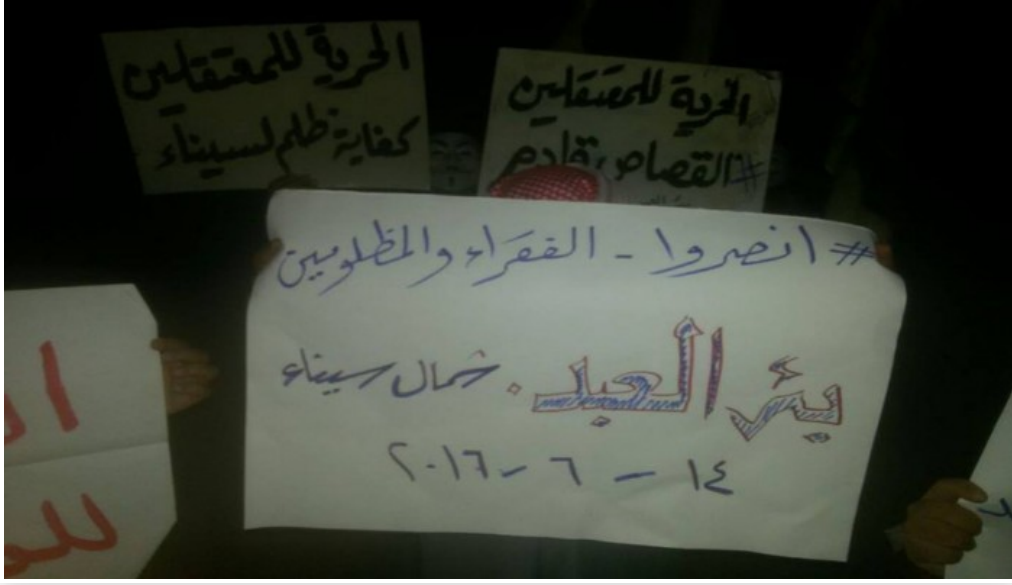 الحرية للمعتقلين
كفاية ظلم لسيناء
الحرية للمعتقلين
#القصاص قادم
# انصروا - الفقراء والمظلومين
بئر العبد. شمال سيناء
١٤ - ٦ - ٢٠١٦